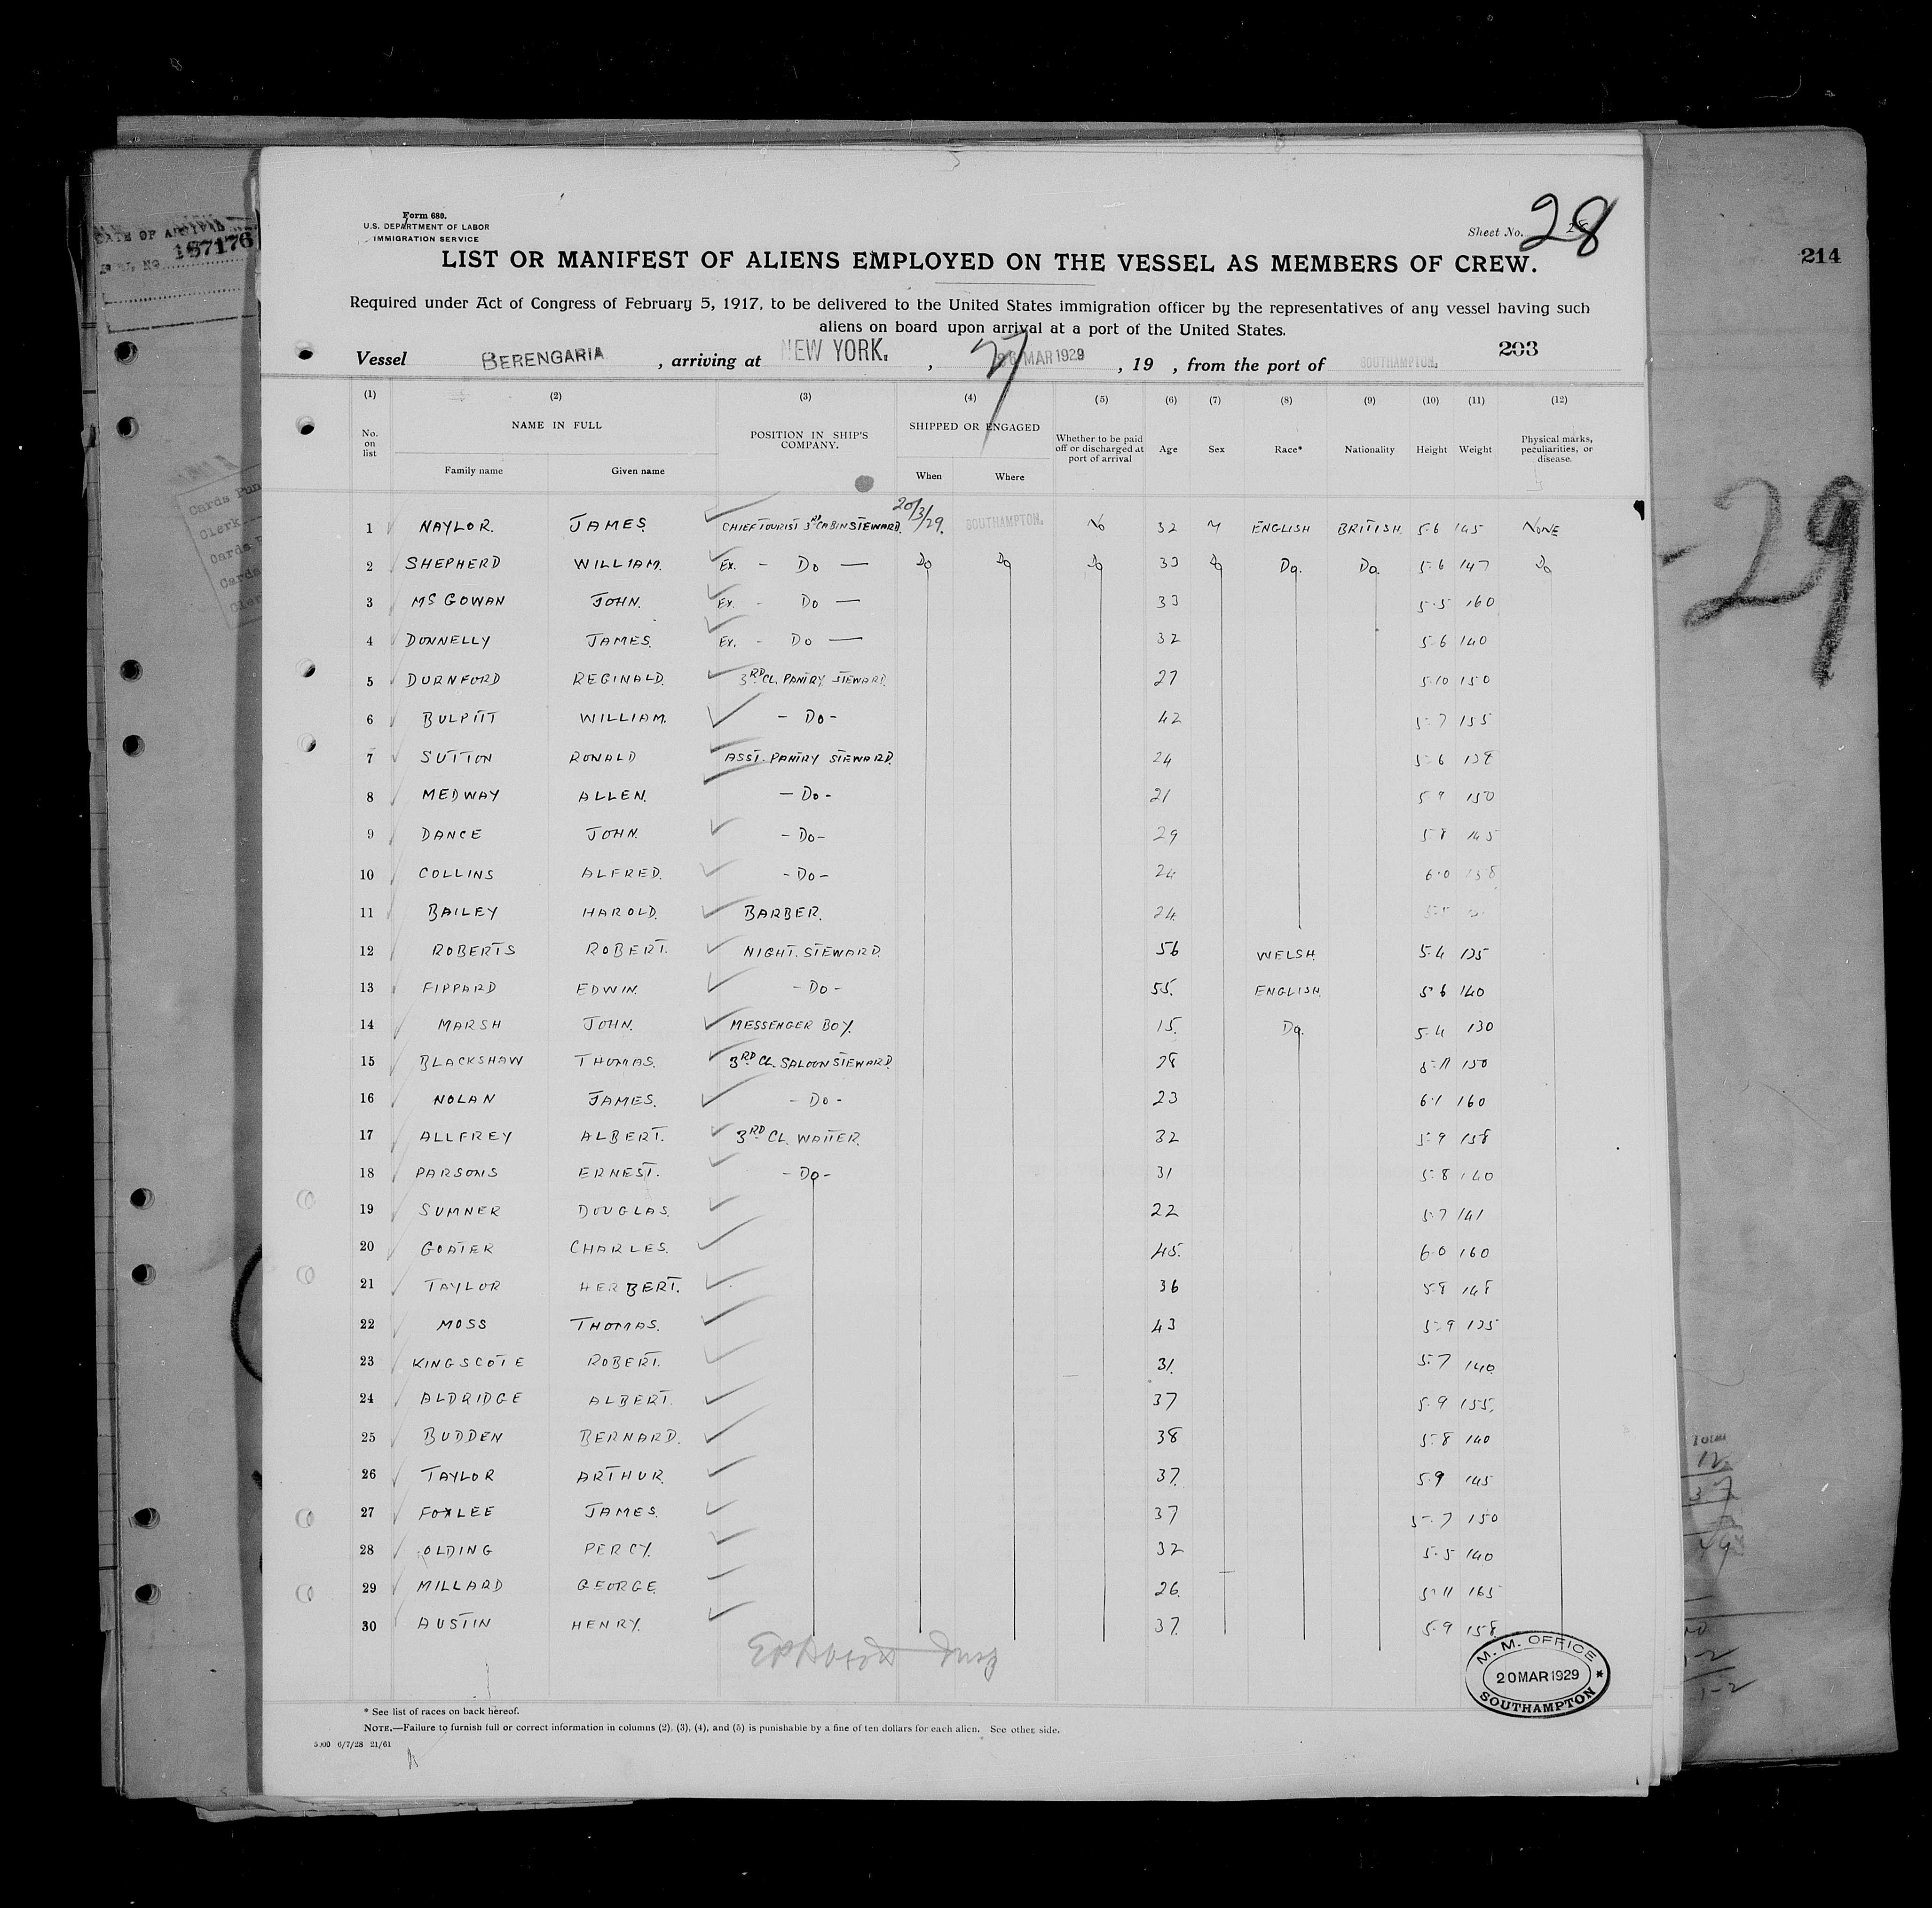 Form 680.
U.S. DEPARTMENT OF LABOR
IMMIGRATION SERVICE
Sheet No. 28
LIST OR MANIFEST OF ALIENS EMPLOYED ON THE VESSEL AS MEMBERS OF CREW.
Required under Act of Congress of February 5, 1917, to be delivered to the United States immigration officer by the representatives of any vessel having such
aliens on board upon arrival at a port of the United States.
203
Vessel BERENGARIA, arriving at NEW YORK. , 27 MAR 1929 , 19 , from the port of SOUTHAMPTON.
(1) (2) (3) (4) (5) (6) (7) (8) (9) (10) (11) (12)
No. on list NAME IN FULL POSITION IN SHIP'S COMPANY. SHIPPED OR ENGAGED Whether to be paid off or discharged at port of arrival Age Sex Race* Nationality Height Weight Physical marks, peculiarities, or disease.
Family name Given name When Where
1 NAYLOR. JAMES CHIEF TOURIST 3RD CABIN STEWARD. 20/3/29. SOUTHAMPTON. No 32 M ENGLISH BRITISH. 5-6 145 NONE
2 SHEPHERD WILLIAM. Ex. - Do — Do Do Do 33 Do Do. Do. 5-6 147 Do
3 McGOWAN JOHN. Ex. - Do — 33 5-5 160
4 DONNELLY JAMES. Ex. - Do — 32 5-6 140
5 DURNFORD REGINALD. 3RD CL. PANTRY STEWARD. 27 5-10 150
6 BULPITT WILLIAM. - Do - 42 5-7 155
7 SUTTON RONALD ASST. PANTRY STEWARD. 24 5-6 138
8 MEDWAY ALLEN. - Do - 21 5-9 150
9 DANCE JOHN. - Do - 29 5-8 145
10 COLLINS ALFRED. - Do - 24 6-0 158
11 BAILEY HAROLD. BARBER. 24
12 ROBERTS ROBERT. NIGHT. STEWARD. 56 WELSH. 5-4 135
13 FIPPARD EDWIN. - Do - 55. ENGLISH. 5-6 140
14 MARSH JOHN. MESSENGER BOY. 15. Do. 5-4 130
15 BLACKSHAW THOMAS. 3RD CL. SALOON STEWARD. 28 5-11 150
16 NOLAN JAMES. - Do - 23 6-1 160
17 ALLFREY ALBERT. 3RD CL. WAITER. 32 5-9 158
18 PARSONS ERNEST. - Do - 31 5-8 140
19 SUMNER DOUGLAS. 22 5-7 141
20 GOATER CHARLES. 45. 6-0 160
21 TAYLOR HERBERT. 36 5-8 148
22 MOSS THOMAS. 43 5-9 135
23 KINGSCOTE ROBERT. 31. 5-7 140
24 ALDRIDGE ALBERT. 37 5-9 155.
25 BUDDEN BERNARD. 38 5-8 140
26 TAYLOR ARTHUR. 37. 5-9 145
27 FOXLEE JAMES. 37 5-7 150
28 OLDING PERCY. 32 5-5 140
29 MILLARD GEORGE. 26. 5-11 165
30 AUSTIN HENRY. 37. 5-9 158
M. M. OFFICE
20 MAR 1929
SOUTHAMPTON
* See list of races on back hereof.
NOTE.—Failure to furnish full or correct information in columns (2), (3), (4), and (5) is punishable by a fine of ten dollars for each alien. See other side.
6/7/28 21/61
DATE OF ARRIVAL
187176
214
-29